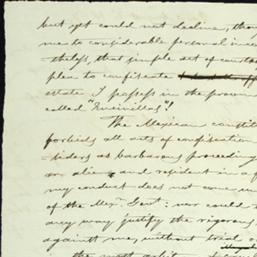 but yet could not decline, tho
me to considerable personal in
theless, that simple act of
plea to confiscate
estate I possess in the provin
called "Encinillas"!
The Mexican constit
forbids all acts of confiscation
as barbarous proceeding
an alien and resident in a f
my conduct does not come un
of the Mex. Govt: nor could
any way justify the rigorous
against me, without trial o